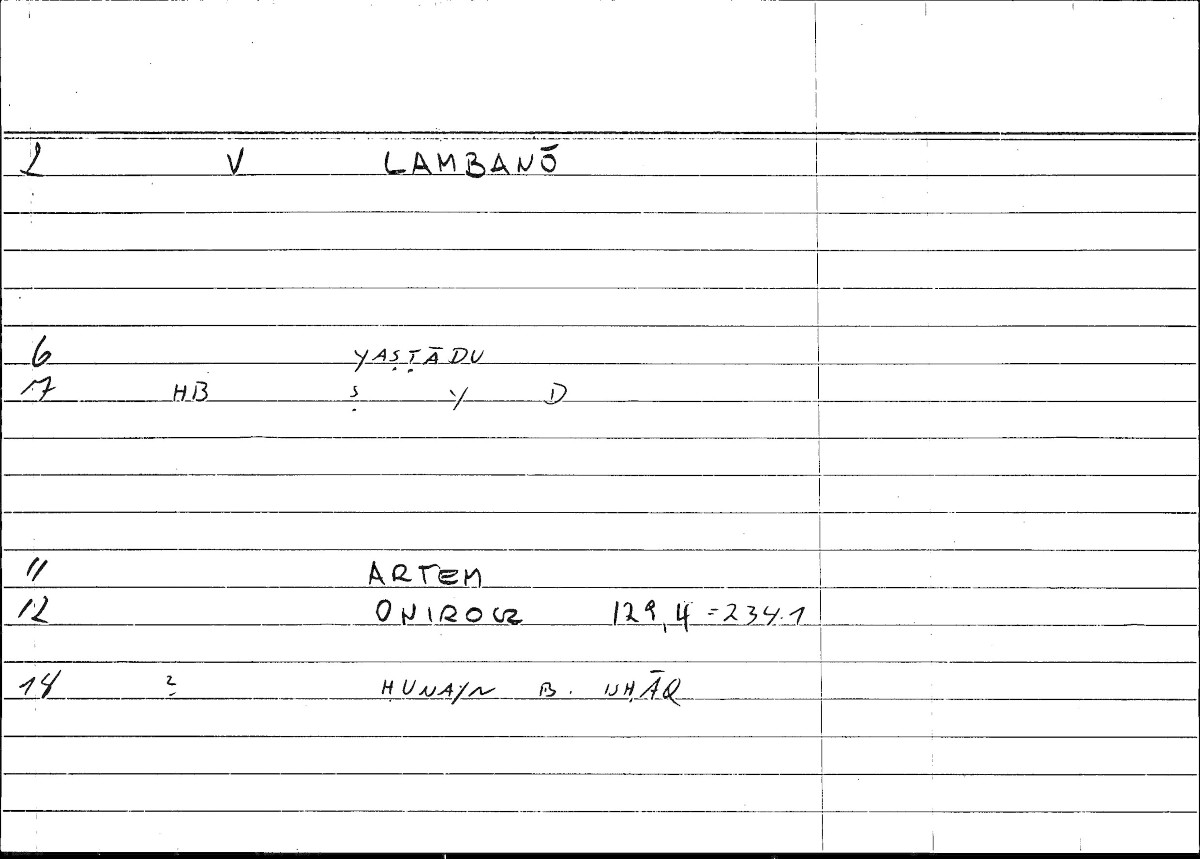 2 V LAMBANŌ
6 YAṢṬĀDU
7 HB Ṣ Y D
11 ARTEM
12 ONIROCR 129,4 = 234.1
14 2 ḤUNAYN B. ISḤĀQ